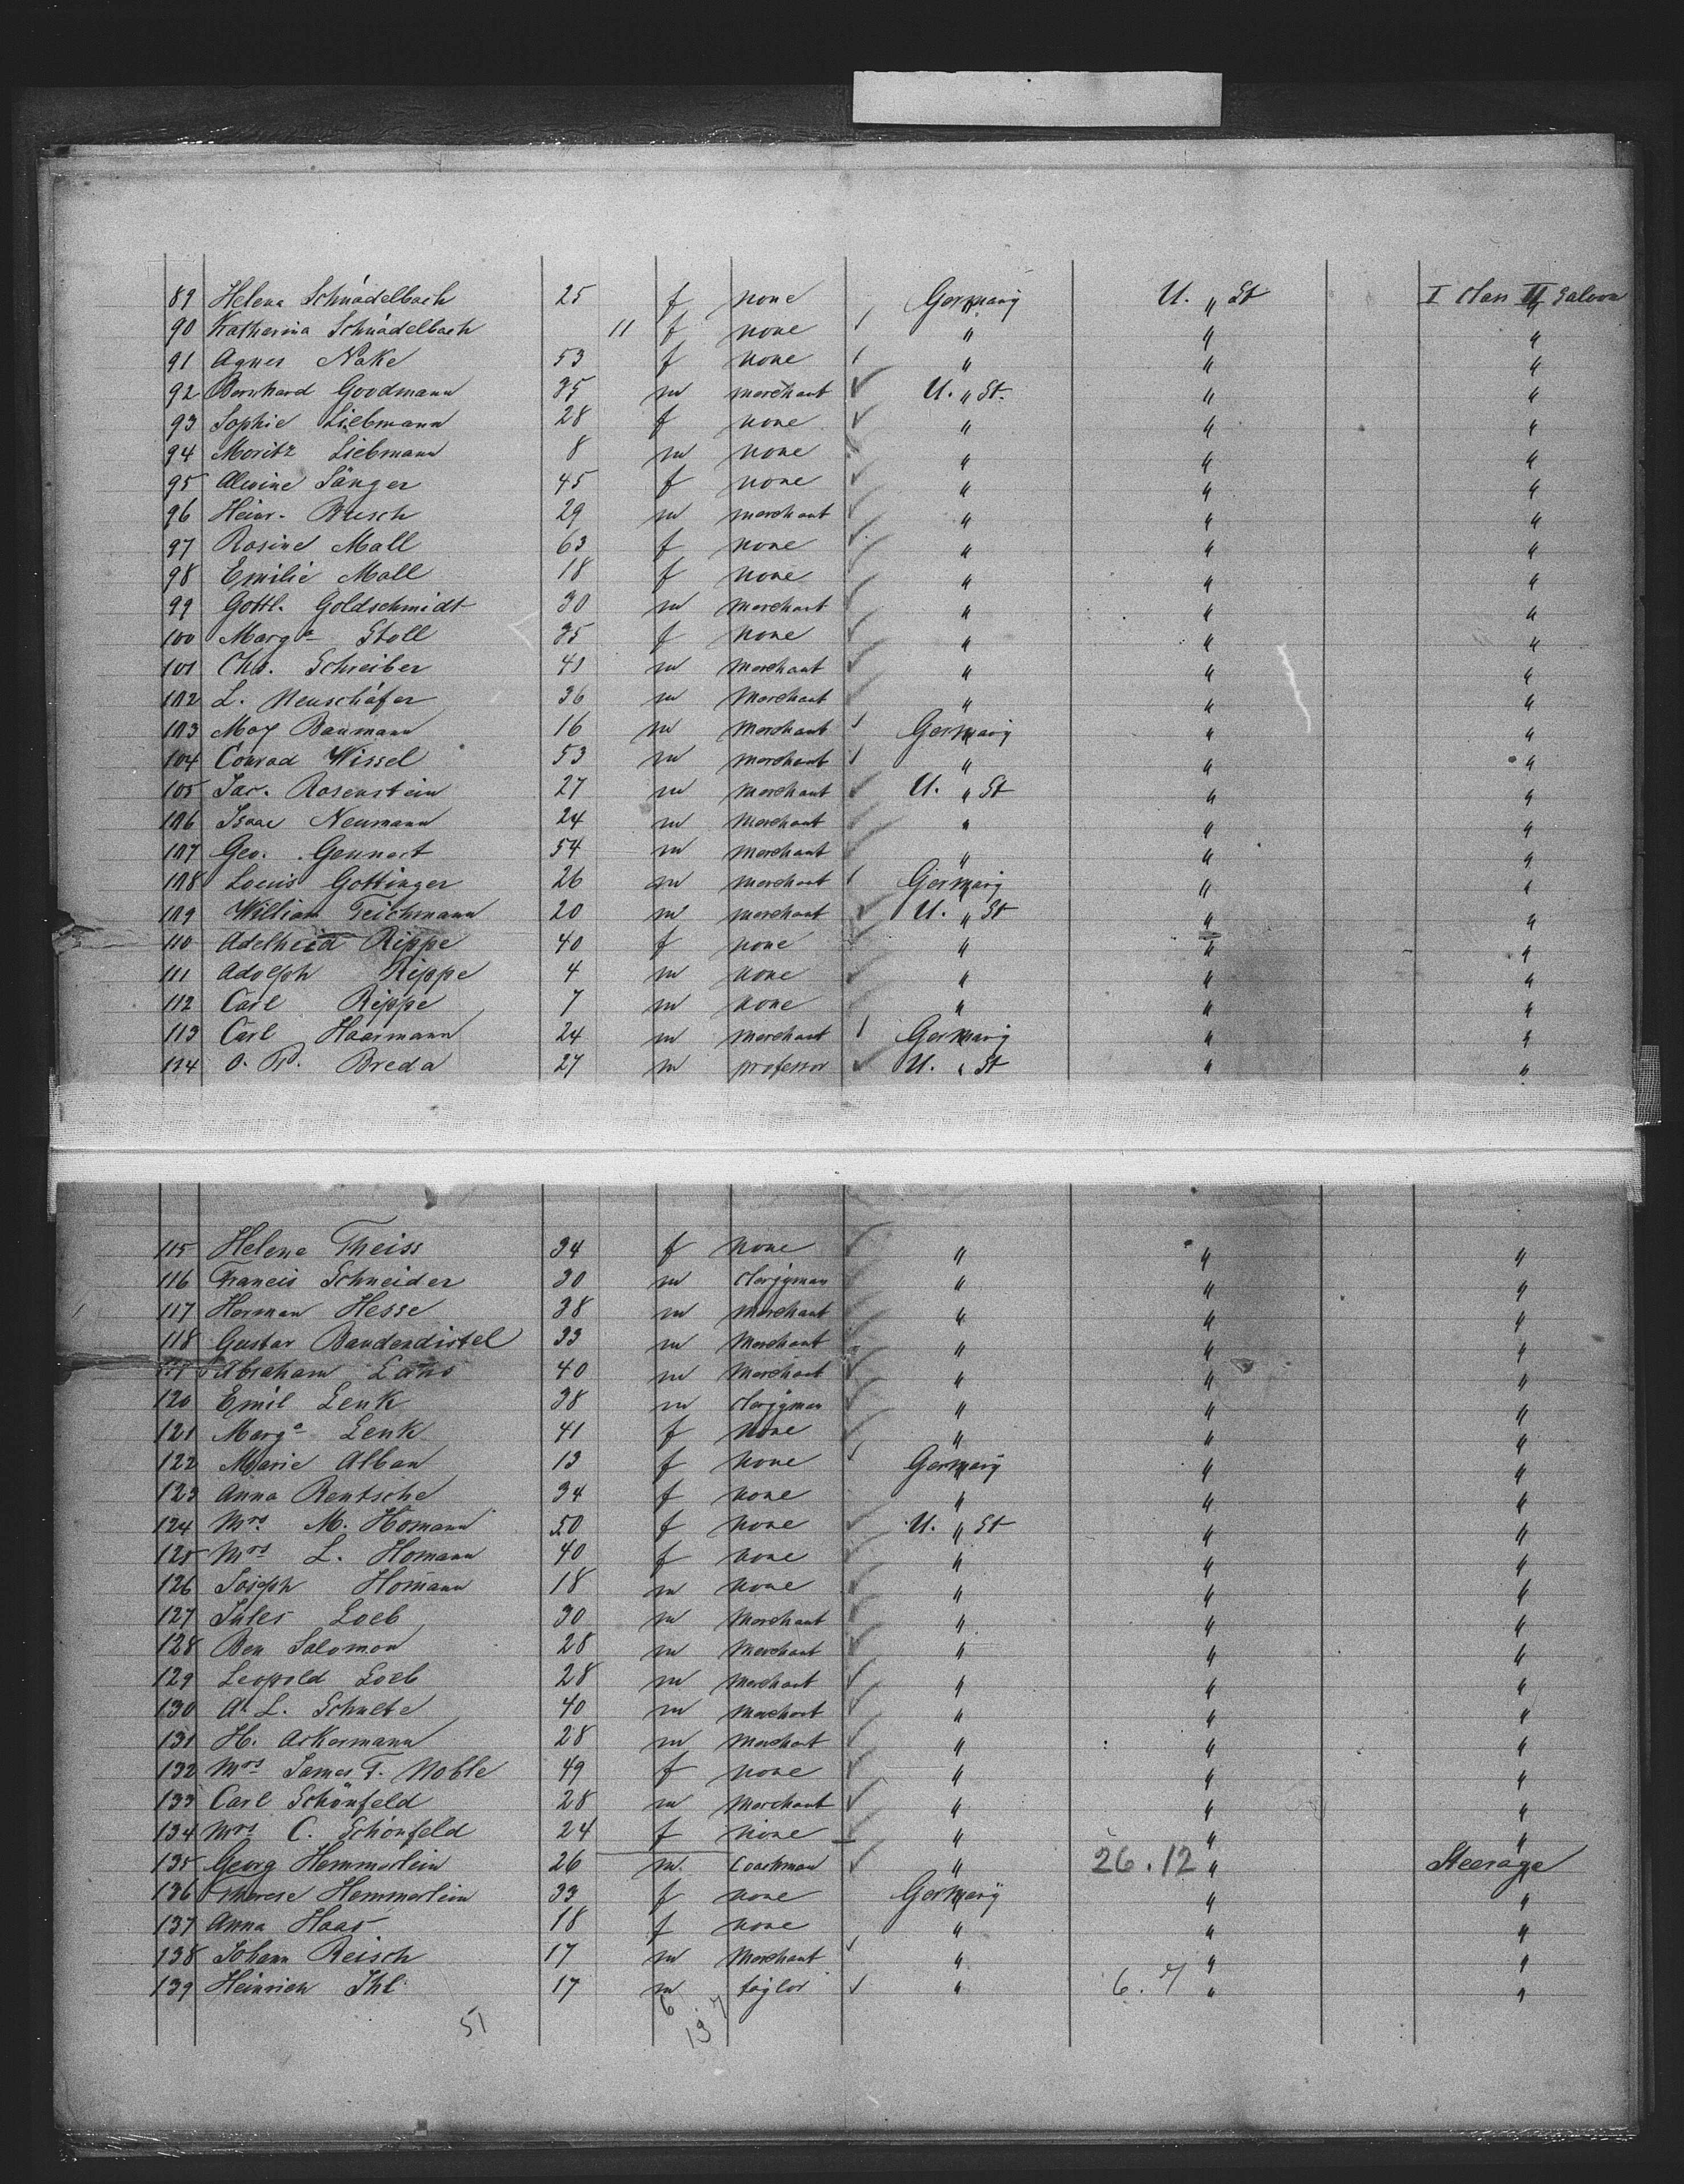 89 Helena Schnädelbach 25 f none Germany U. „ St I Class II Saloon
90 Katherina Schnädelbach 11 f none „ „ „
91 Agnes Nake 53 f none „ „ „
92 Bernhard Goodmann 35 m merchant U. „ St. „ „
93 Sophie Liebmann 28 f none „ „ „
94 Moritz Liebmann 8 m none „ „ „
95 Alwine Sänger 45 f none „ „ „
96 Heinr. Busch 29 m merchant „ „ „
97 Rosine Mall 63 f none „ „ „
98 Emilie Mall 18 f none „ „ „
99 Gottl. Goldschmidt 30 m merchant „ „ „
100 Marg. Stoll 35 f none „ „ „
101 Chr. Schreiber 41 m merchant „ „ „
102 L. Neuschäfer 36 m merchant „ „ „
103 Max Baumann 16 m merchant Germany „ „
104 Conrad Wissel 53 m merchant „ „ „
105 Jac. Rosenstein 27 m merchant U. „ St „ „
106 Isaac Neumann 24 m merchant „ „ „
107 Geo. Gennert 54 m merchant „ „ „
108 Louis Gottinger 26 m merchant Germany „ „
109 William Teichmann 20 m merchant U. „ St „ „
110 Adelheid Rippe 40 f none „ „ „
111 Adolph Rippe 4 m none „ „ „
112 Carl Rippe 7 m none „ „ „
113 Carl Haarmann 24 m merchant Germany „ „
114 O. P. Breda 27 m professor U. „ St „ „
115 Helene Theiss 34 f none „ „ „
116 Francis Schneider 30 m clergyman „ „ „
117 Herman Hesse 38 m merchant „ „ „
118 Gustav Bauderdistel 33 m merchant „ „ „
119 Abraham 40 m merchant „ „ „
120 Emil Lenk 38 m clergyman „ „ „
121 Marg. Lenk 41 f none „ „ „
122 Marie Alban 13 f none Germany „ „
123 Anna Rentsche 34 f none „ „ „
124 Mrs. M. Homann 50 f none U. „ St „ „
125 Mrs L. Homann 40 f none „ „ „
126 Joseph Homann 18 m none „ „ „
127 Jules Loeb 30 m merchant „ „ „
128 Ben Salomon 28 m merchant „ „ „
129 Leopold Loeb 28 m merchant „ „ „
130 A. L. Schulte 40 m merchant „ „ „
131 H. Ackermann 28 m merchant „ „ „
132 Mrs James F. Noble 49 f none „ „ „
133 Carl Schönfeld 28 m merchant „ „ „
134 Mrs C. Schönfeld 24 f none „ „ „
135 Georg Hemmerlein 26 m. coachman „ 26.12 „ Steerage
136 Therese Hemmerlein 33 f none Germany „ „
137 Anna Haas 18 f none „ „ „
138 Johann Reisch 17 m merchant „ „ „
139 Heinrich Ihl 17 m taylor „ 6.7 „ „
51 6.7
13